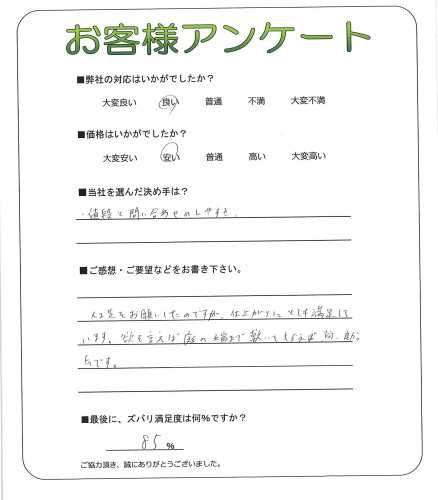 お客様アンケート
■弊社の対応はいかがでしたか?
大変良い 良い 普通 不満 大変不満
■価格はいかがでしたか?
大変安い 安い 普通 高い 大変高い
■当社を選んだ決め手は?
・値段と問い合わせのしやすさ。
■ご感想・ご要望などをお書き下さい。
人工芝をお願いしたのですが、仕上がりにとても満足して
います。欲を言えば庭の端まで敷いて
です。
■最後に、ズバリ満足度は何%ですか?
85%
ご協力頂き、誠にありがとうございました。